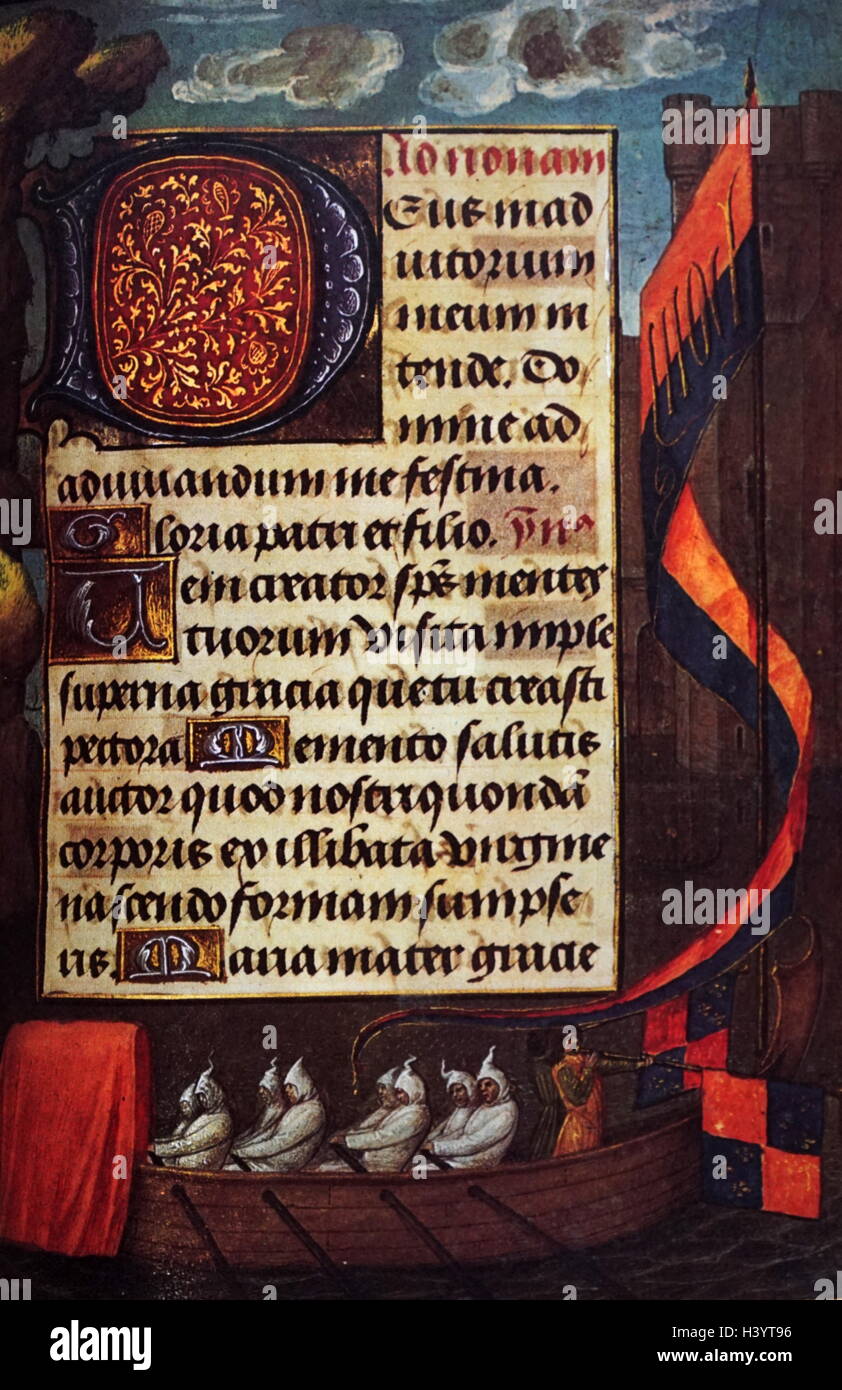 Ad nonam
Deus in ad
iutorium
meum in
tende. Do
mine ad
adiuuandum me festina.
Gloria patri et filio.
Ueni creator sp̄s mentes
tuorum visita imple
superna gracia que tu creasti
pectora Memento salutis
auctor quod nostri quondā
corporis ex illibata virgine
nascendo formam sumpse
ris. Maria mater gracie
alamy
alamy
alamy
alamy
alamy
Image ID: H3YT96
www.alamy.com